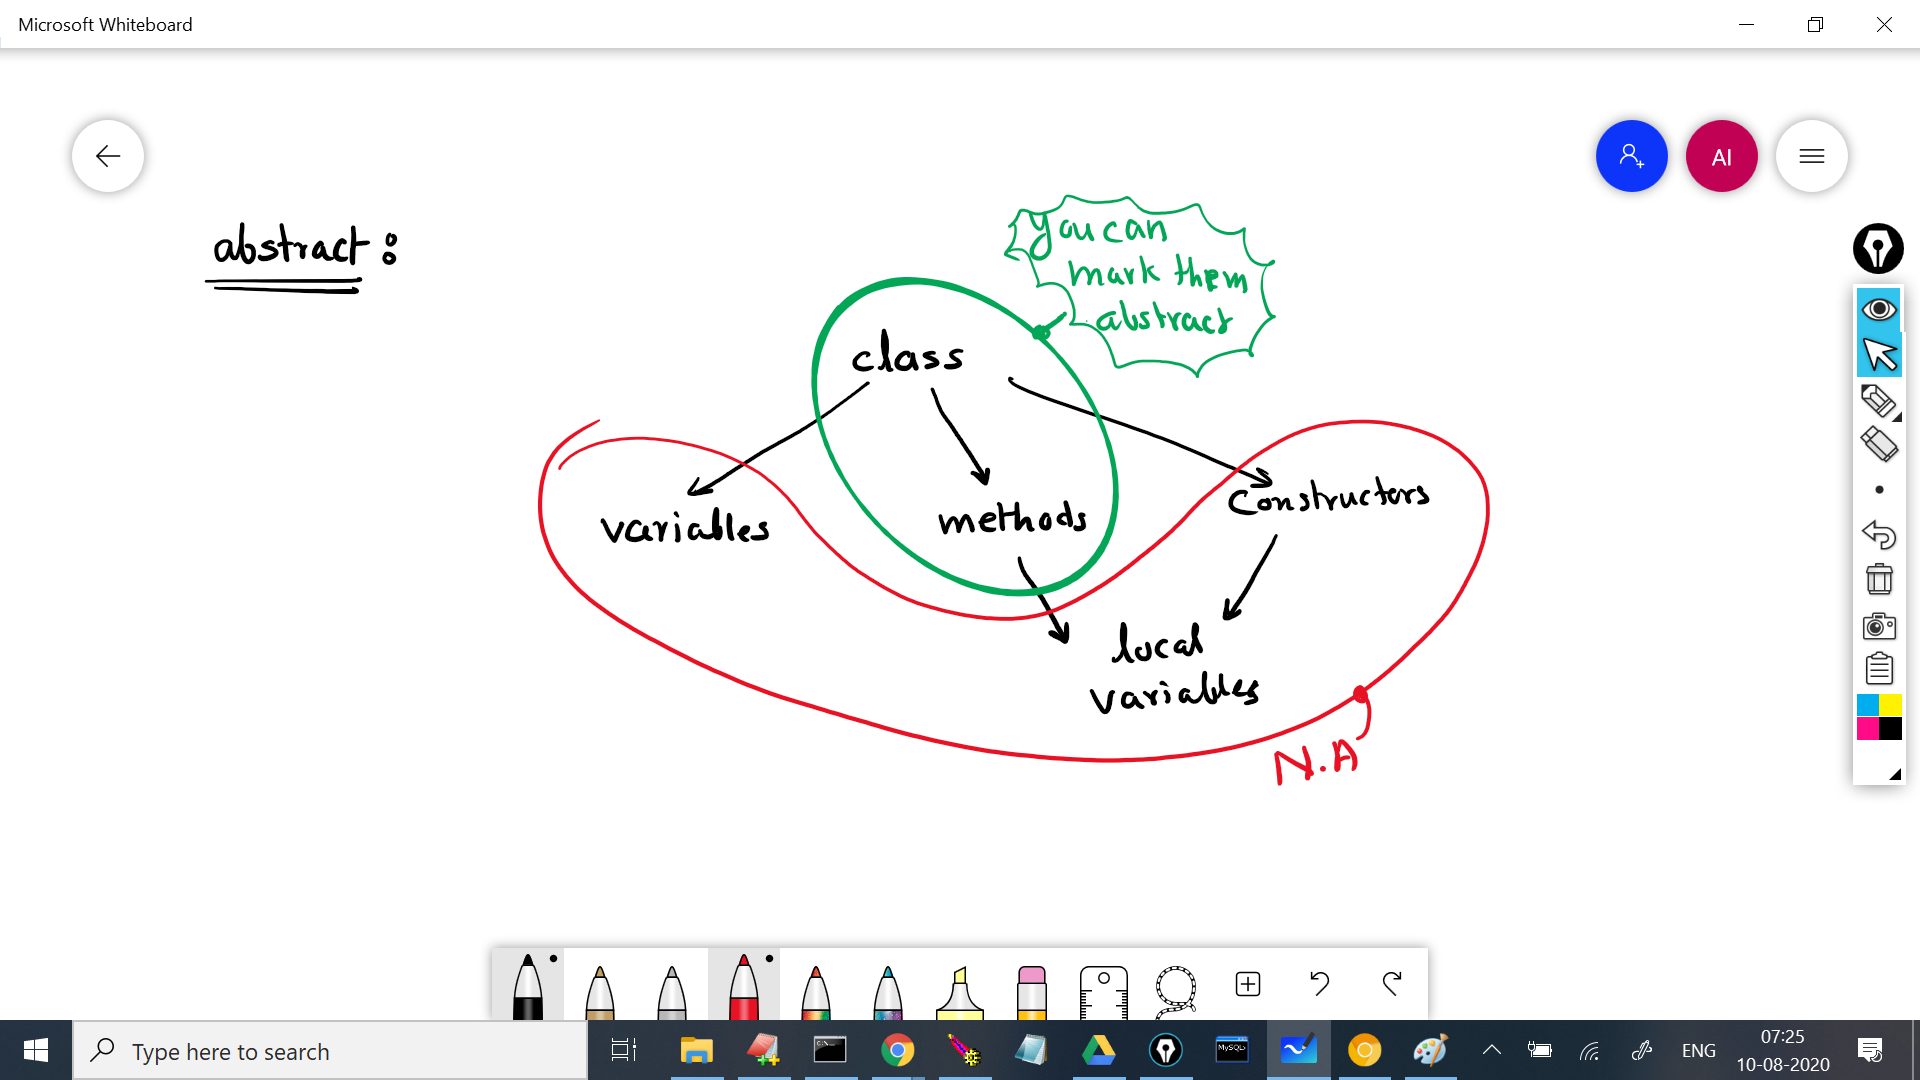 Microsoft Whiteboard
AI
abstract:
you can
mark them
abstract
class
variables
methods
constructors
local
variables
N.A
Type here to search
C:\
MySQL
ENG
07:25
10-08-2020